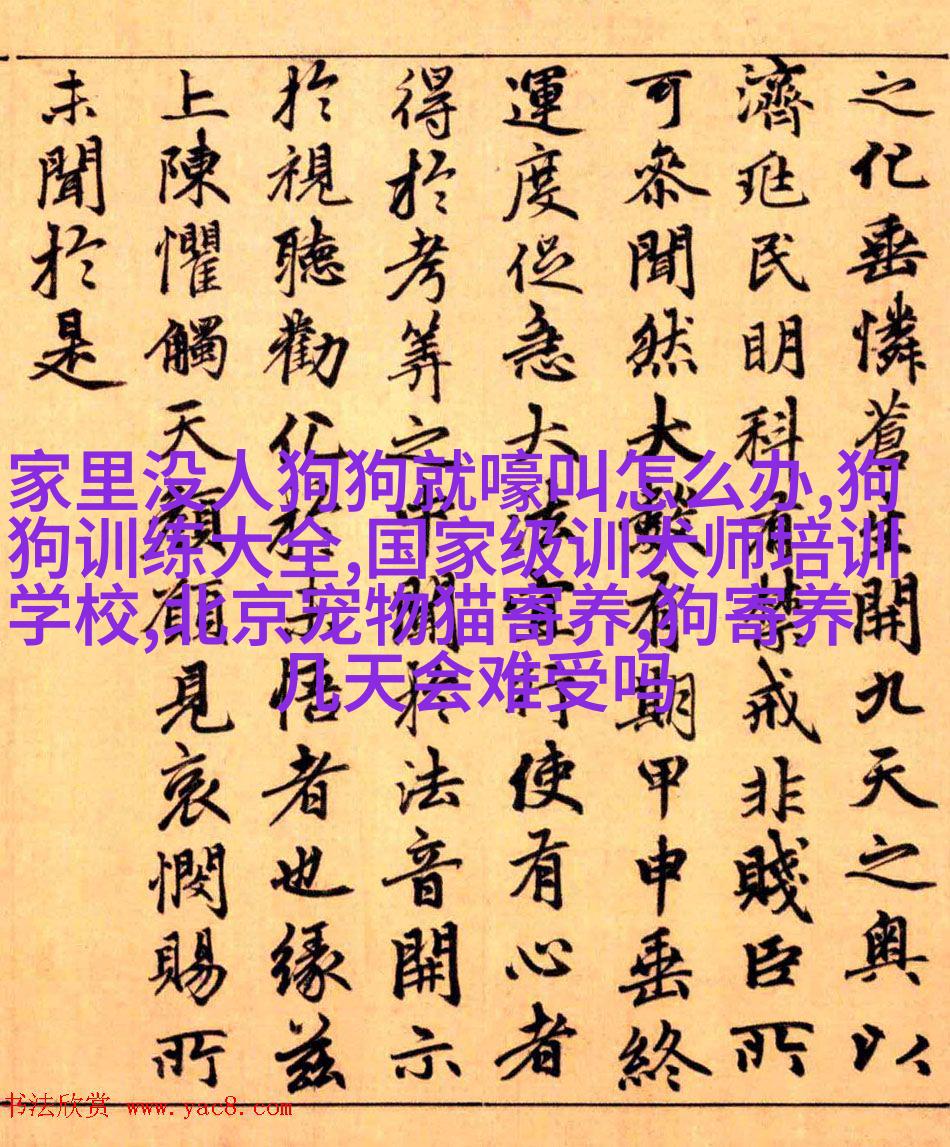 之化垂憐蒼生開九天之奥以
濟兆民明科有禁戒非賤臣所
可叅聞然大數有期甲申垂終
運度促急大法宜行使有心者
得於考筭之中聞於法音開示
於視聽勸化於未悟者也緣兹
上陳懼觸天顔顧見哀憫賜所
未聞於是
家里没人狗狗就嚎叫怎么办,狗
狗训练大全,国家级训犬师培训
学校,北京宠物猫寄养,狗寄养
几天会难受吗
书法欣赏 www.yac8.com